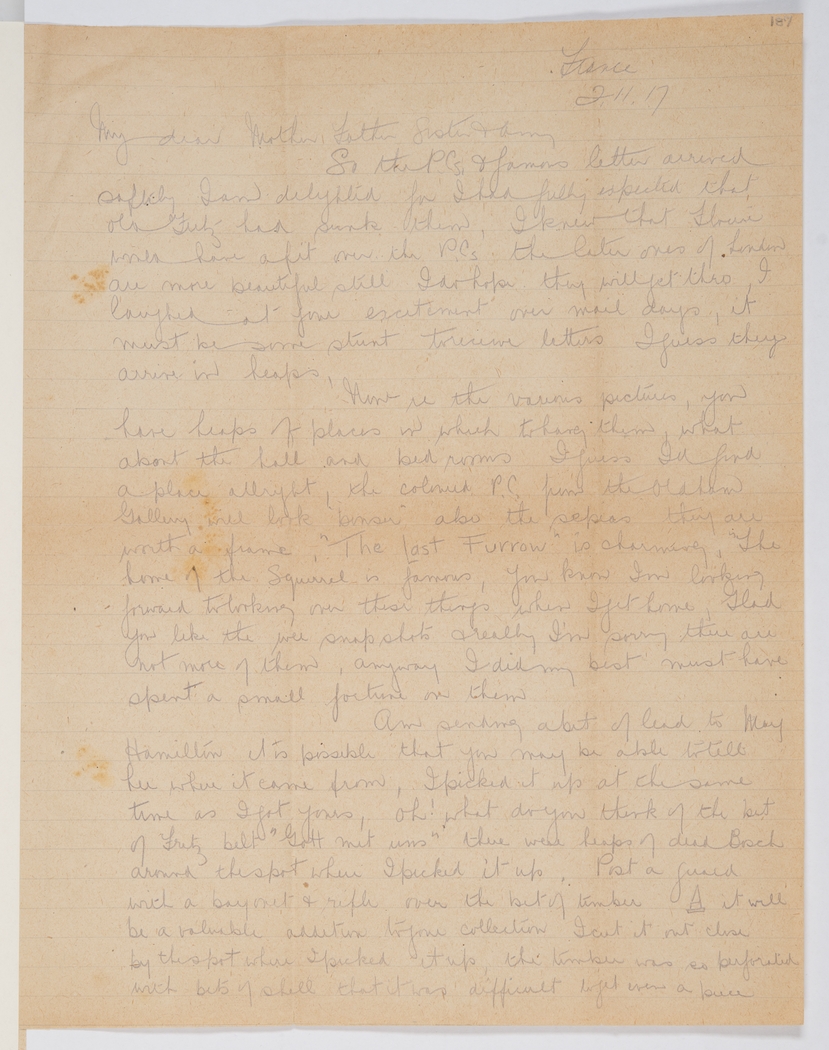 187
France
2.11.17
My dear Mother, Father Sister & Amy
So the P.Cs & famous letter arrived
safely I am delighted for I had fully expected that
old Fritz had sunk them, I knew that I
have a fit over the P.Cs. the later ones of London
are more beautiful still I do hope they will get thro, I
laughed at your excitement over mail days, it
must be some stunt to receive letters I guess they
arrive in heaps,
Now re the various pictures, you
have heaps of places in which to hang them, what
about the hall and bed rooms I guess I'd find
a place allright, the colored P.C. from the Oldham
Gallery will look "bonser" also the sepias they are
worth a frame, "The last Furrow" is charming, "The
home of the Squirrel is famous, you know I'm looking
forward to looking over these things when I get home, Glad
you like the wee snapshots really I'm sorry there are
not more of them, anyway I did my best must have
spent a small fortune on them
Am sending a bit of lead to May
Hamilton it is possible that you may be able to tell
her where it came from, I picked it up at the same
time as I got yours, Oh! what do you think of the bit
of Fritz belt "Gott mit uns" there were heaps of dead Bosch
around the spot where I picked it up, Post a guard
with a bayonet & rifle over the bit of timber A it will
be a valuable addition to your collection I cut it out close
by the spot where I picked it up, the timber was so perforated
with bits of shell that it was difficult to get even a piece